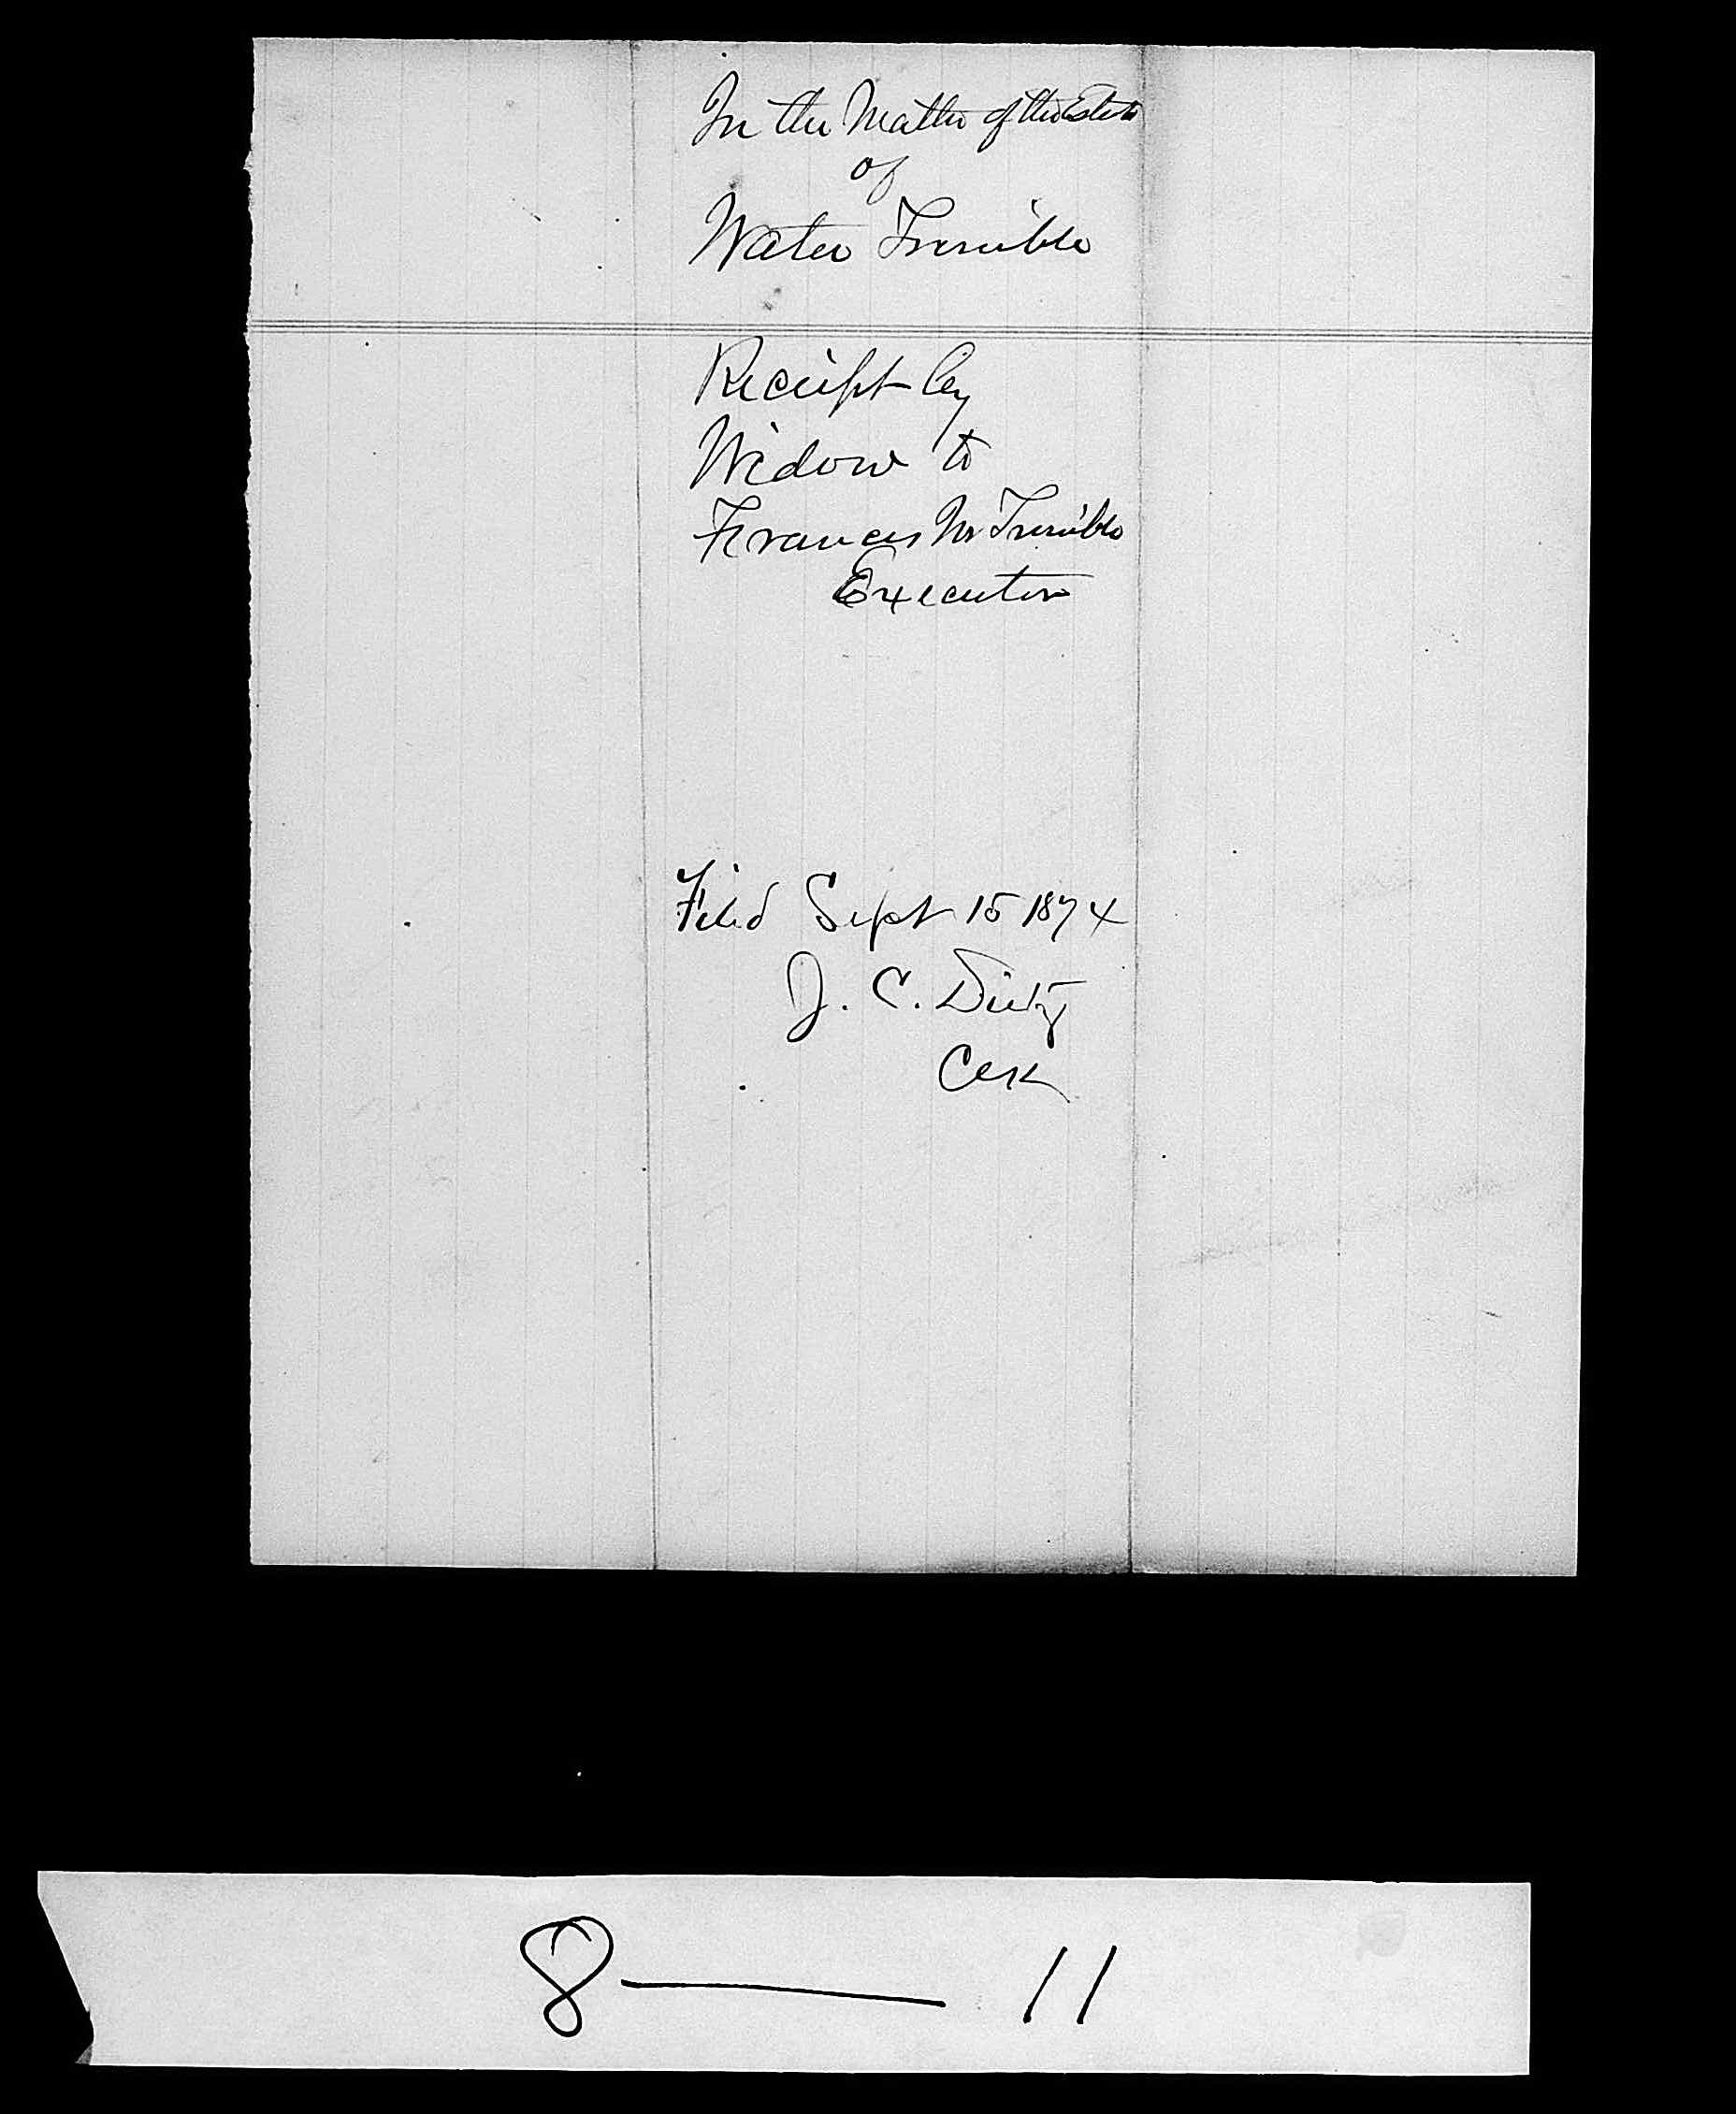 In the Matter of the Estate
of
Water Trimble
Receipt by
Widow to
Francis M Trimble
Executor
Filed Sept 15 1874
J. C. Dietz
Clerk
8 — 11